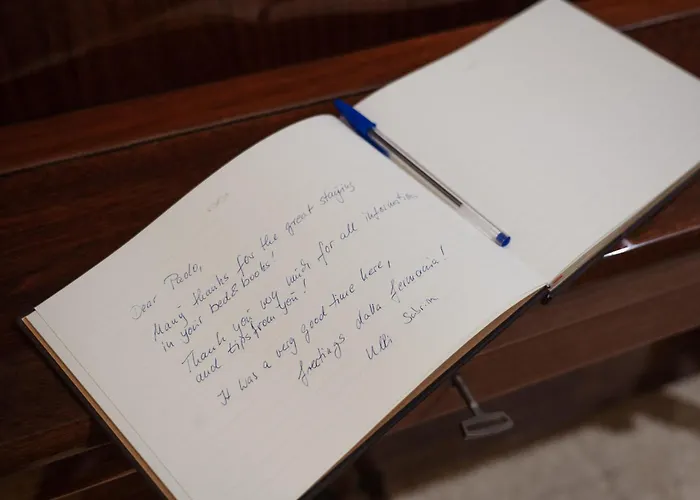 Dear Paolo,
Many thanks for the great staying
in your bed&books!
Thank you very much for all information
and tips from you!
It was a very good time here,
greetings dalla Germania!
Ulli Sabrin